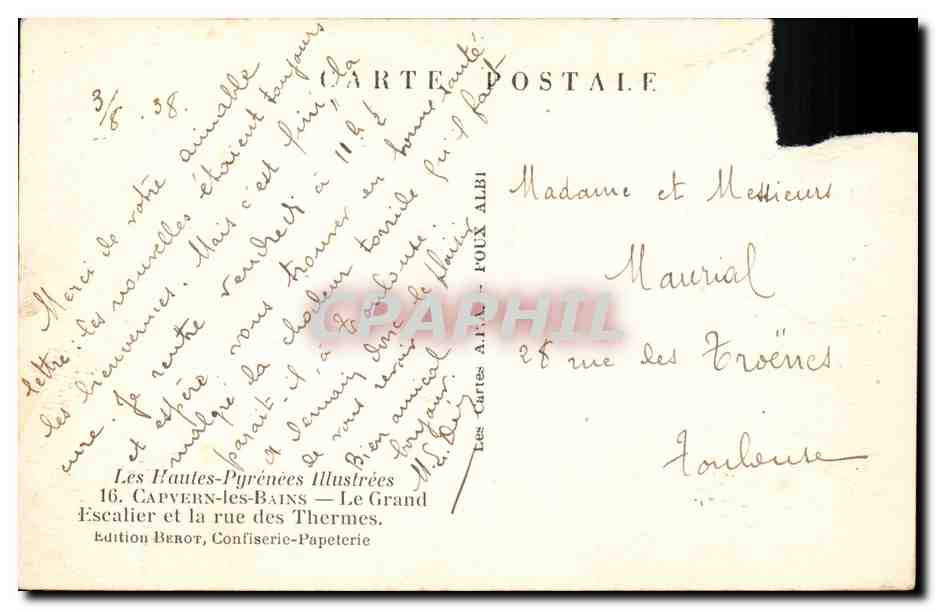 CARTE POSTALE
3/8 . 38.
Merci de votre aimable
lettre : les nouvelles étaient toujours
les bienvenues. Mais c'est fini, la
cure. Je rentre vendredi à 11 h
et espère vous trouver en bonne santé
malgré la chaleur torride qu'il fait
paraît-il, à Toulouse.
A demain donc le plaisir
de vous revoir
Bien amical
bonjour.
Les Cartes A.P.A. - POUX ALBI
Madame et Messieurs
Maurial
28 rue des Troënes
Toulouse
CPAPHIL
Les Hautes-Pyrénées Illustrées
16. CAPVERN-les-BAINS — Le Grand
Escalier et la rue des Thermes.
Edition BEROT, Confiserie-Papeterie